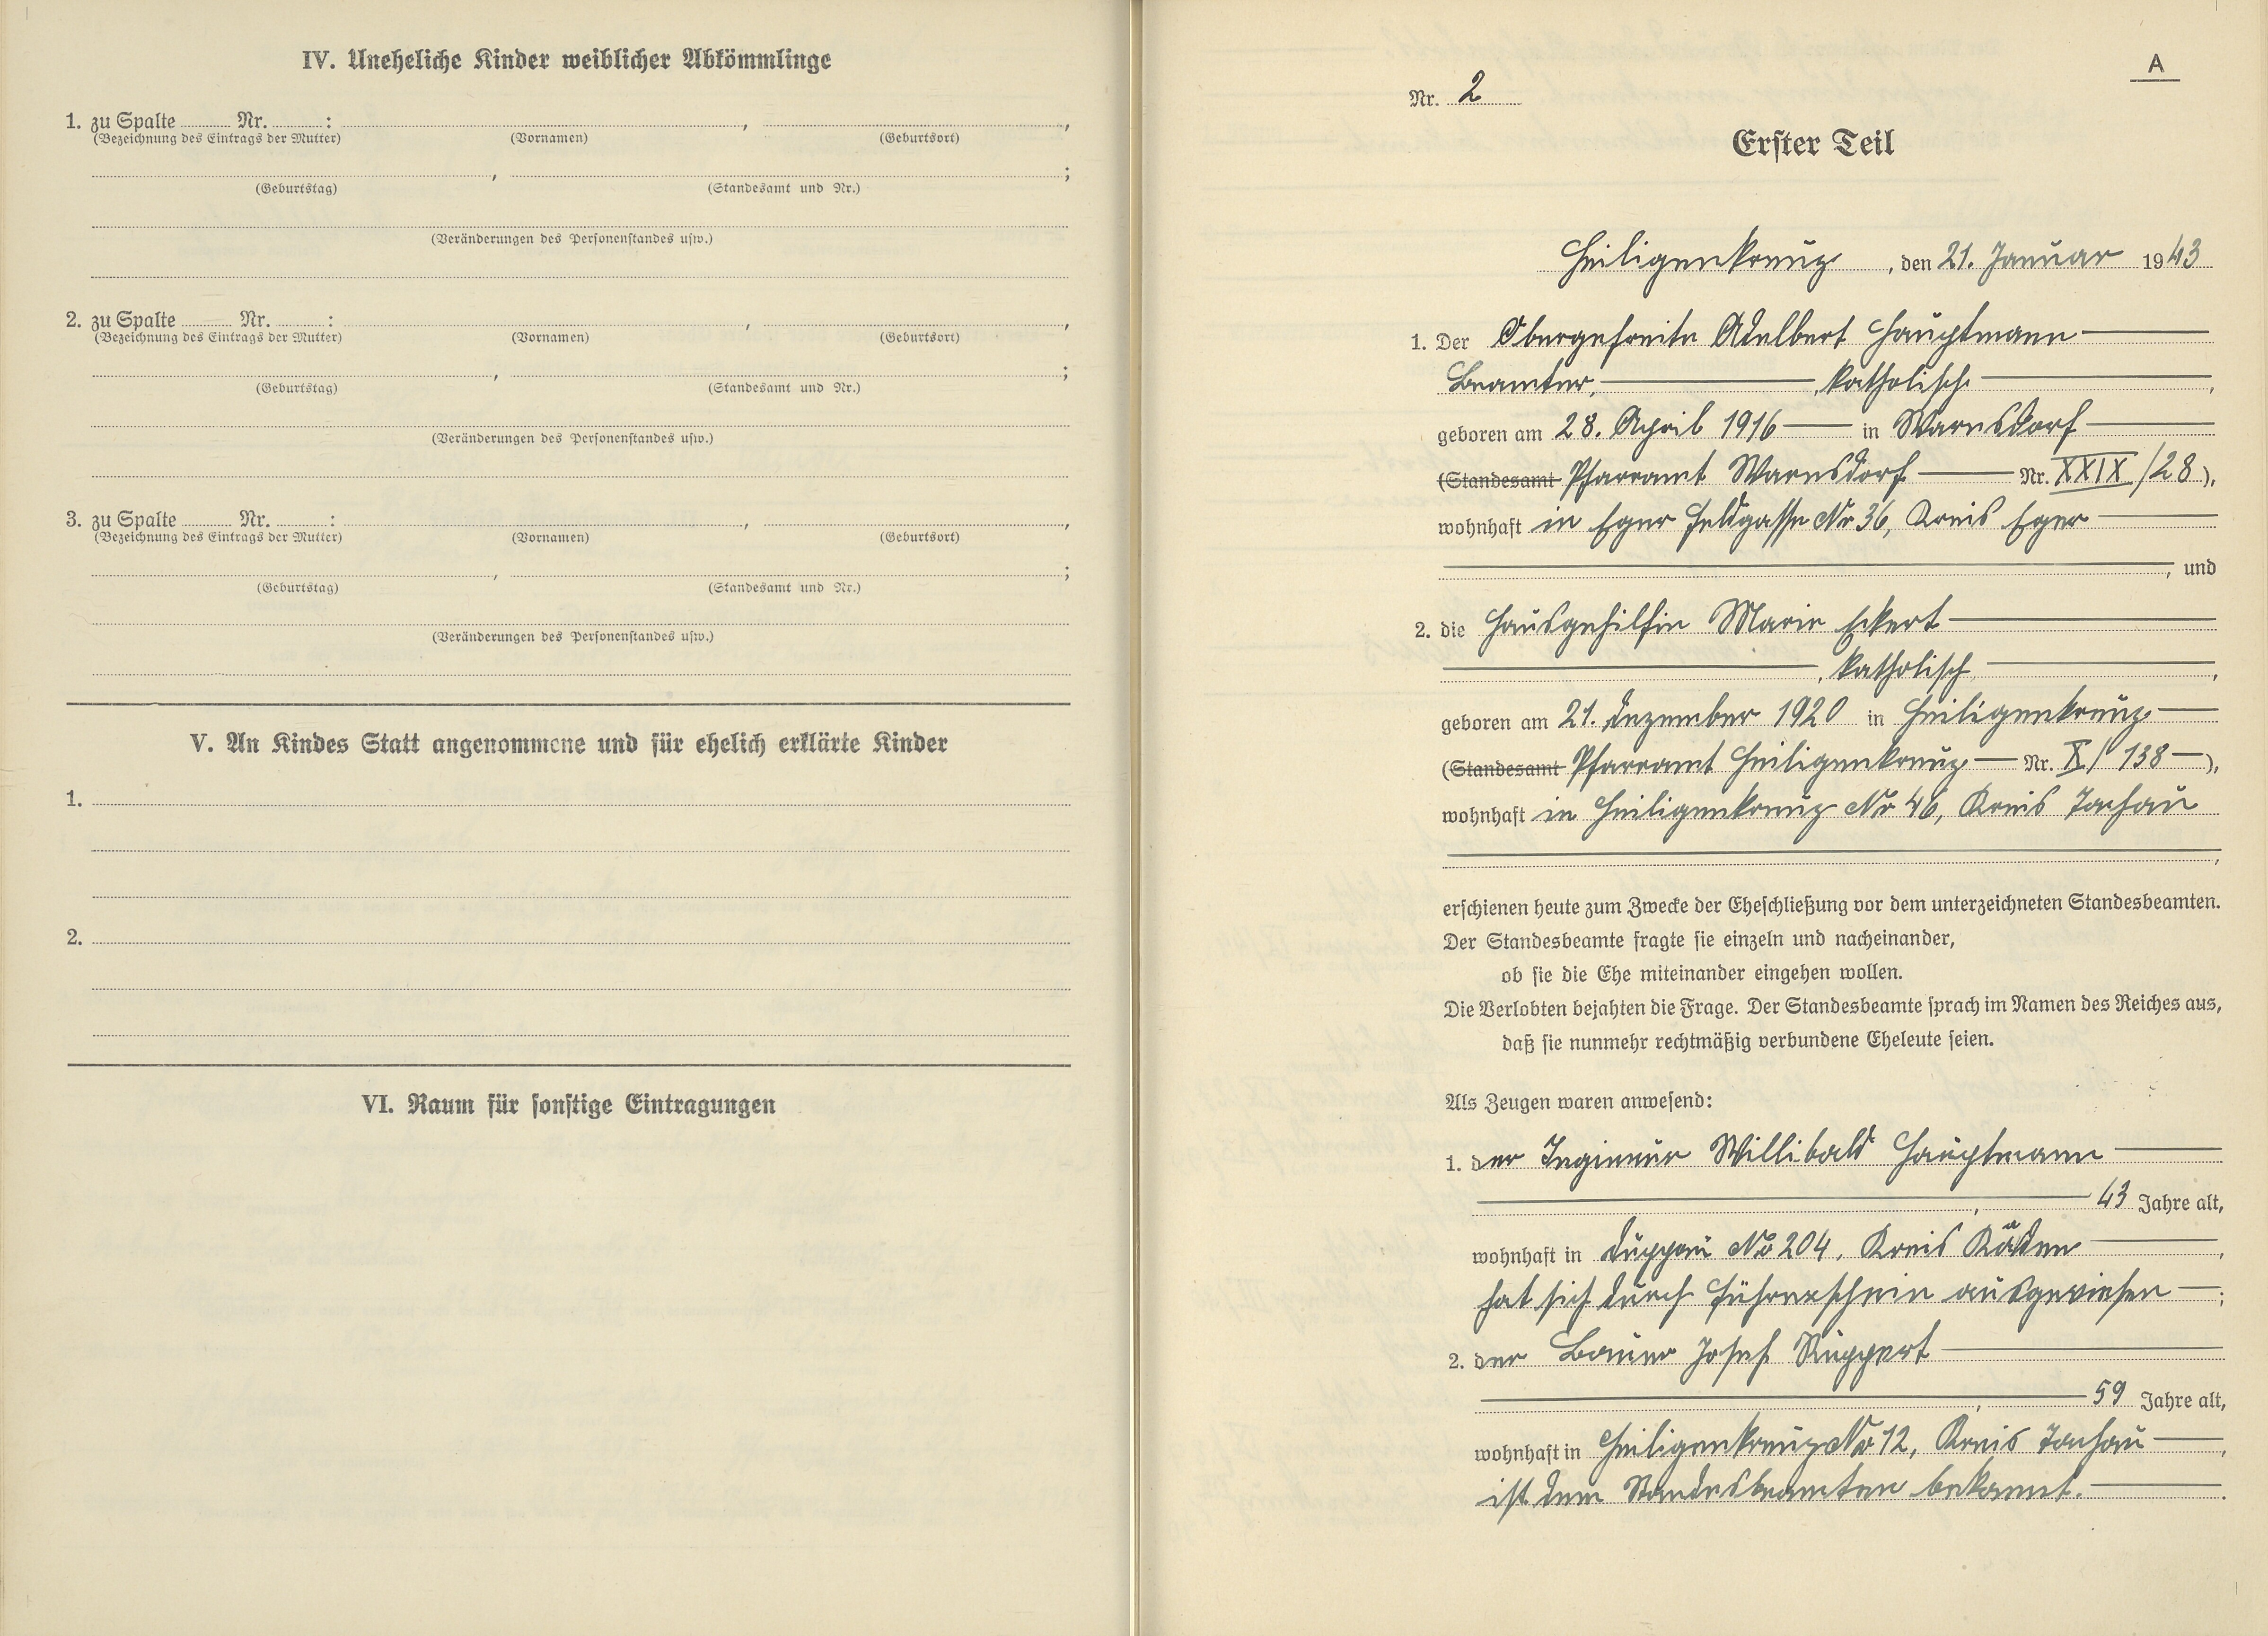 IV. Uneheliche Kinder weiblicher Abkömmlinge
1. zu Spalte ........ Nr. ........ : , ,
(Bezeichnung des Eintrags der Mutter) (Vornamen) (Geburtsort)
, ;
(Geburtstag) (Standesamt und Nr.)
(Veränderungen des Personenstandes usw.)
2. zu Spalte ........ Nr. ........ : , ,
(Bezeichnung des Eintrags der Mutter) (Vornamen) (Geburtsort)
, ;
(Geburtstag) (Standesamt und Nr.)
(Veränderungen des Personenstandes usw.)
3. zu Spalte ........ Nr. ........ : , ,
(Bezeichnung des Eintrags der Mutter) (Vornamen) (Geburtsort)
, ;
(Geburtstag) (Standesamt und Nr.)
(Veränderungen des Personenstandes usw.)
V. An Kindes Statt angenommene und für ehelich erklärte Kinder
1.
2.
VI. Raum für sonstige Eintragungen
A
Nr. 2
Erster Teil
Heiligenkreuz, den 21. Januar 1943
1. Der Obergefreite Adelbert Hauptmann
Beamter, , katholisch ,
geboren am 28. April 1916 in Warnsdorf
(Standesamt Pfarramt Warnsdorf Nr. XXIX/28),
wohnhaft in Eger Feldgasse No 36, Kreis Eger
, und
2. die Hausgehilfin Marie Eckert
, katholisch ,
geboren am 21. Dezember 1920 in Heiligenkreuz
(Standesamt Pfarramt Heiligenkreuz Nr. X/138),
wohnhaft in Heiligenkreuz No 46, Kreis Tachau
,
erschienen heute zum Zwecke der Eheschließung vor dem unterzeichneten Standesbeamten.
Der Standesbeamte fragte sie einzeln und nacheinander,
ob sie die Ehe miteinander eingehen wollen.
Die Verlobten bejahten die Frage. Der Standesbeamte sprach im Namen des Reiches aus,
daß sie nunmehr rechtmäßig verbundene Eheleute seien.
Als Zeugen waren anwesend:
1. der Ingineur Willibald Hauptmann
, 43 Jahre alt,
wohnhaft in Duppau No 204, Kreis Kaaden ,
hat sich durch Führerschein ausgewiesen ;
2. der Bauer Josef Ruppert
, 59 Jahre alt,
wohnhaft in Heiligenkreuz No 12, Kreis Tachau ,
ist dem Standesbeamten bekannt. .